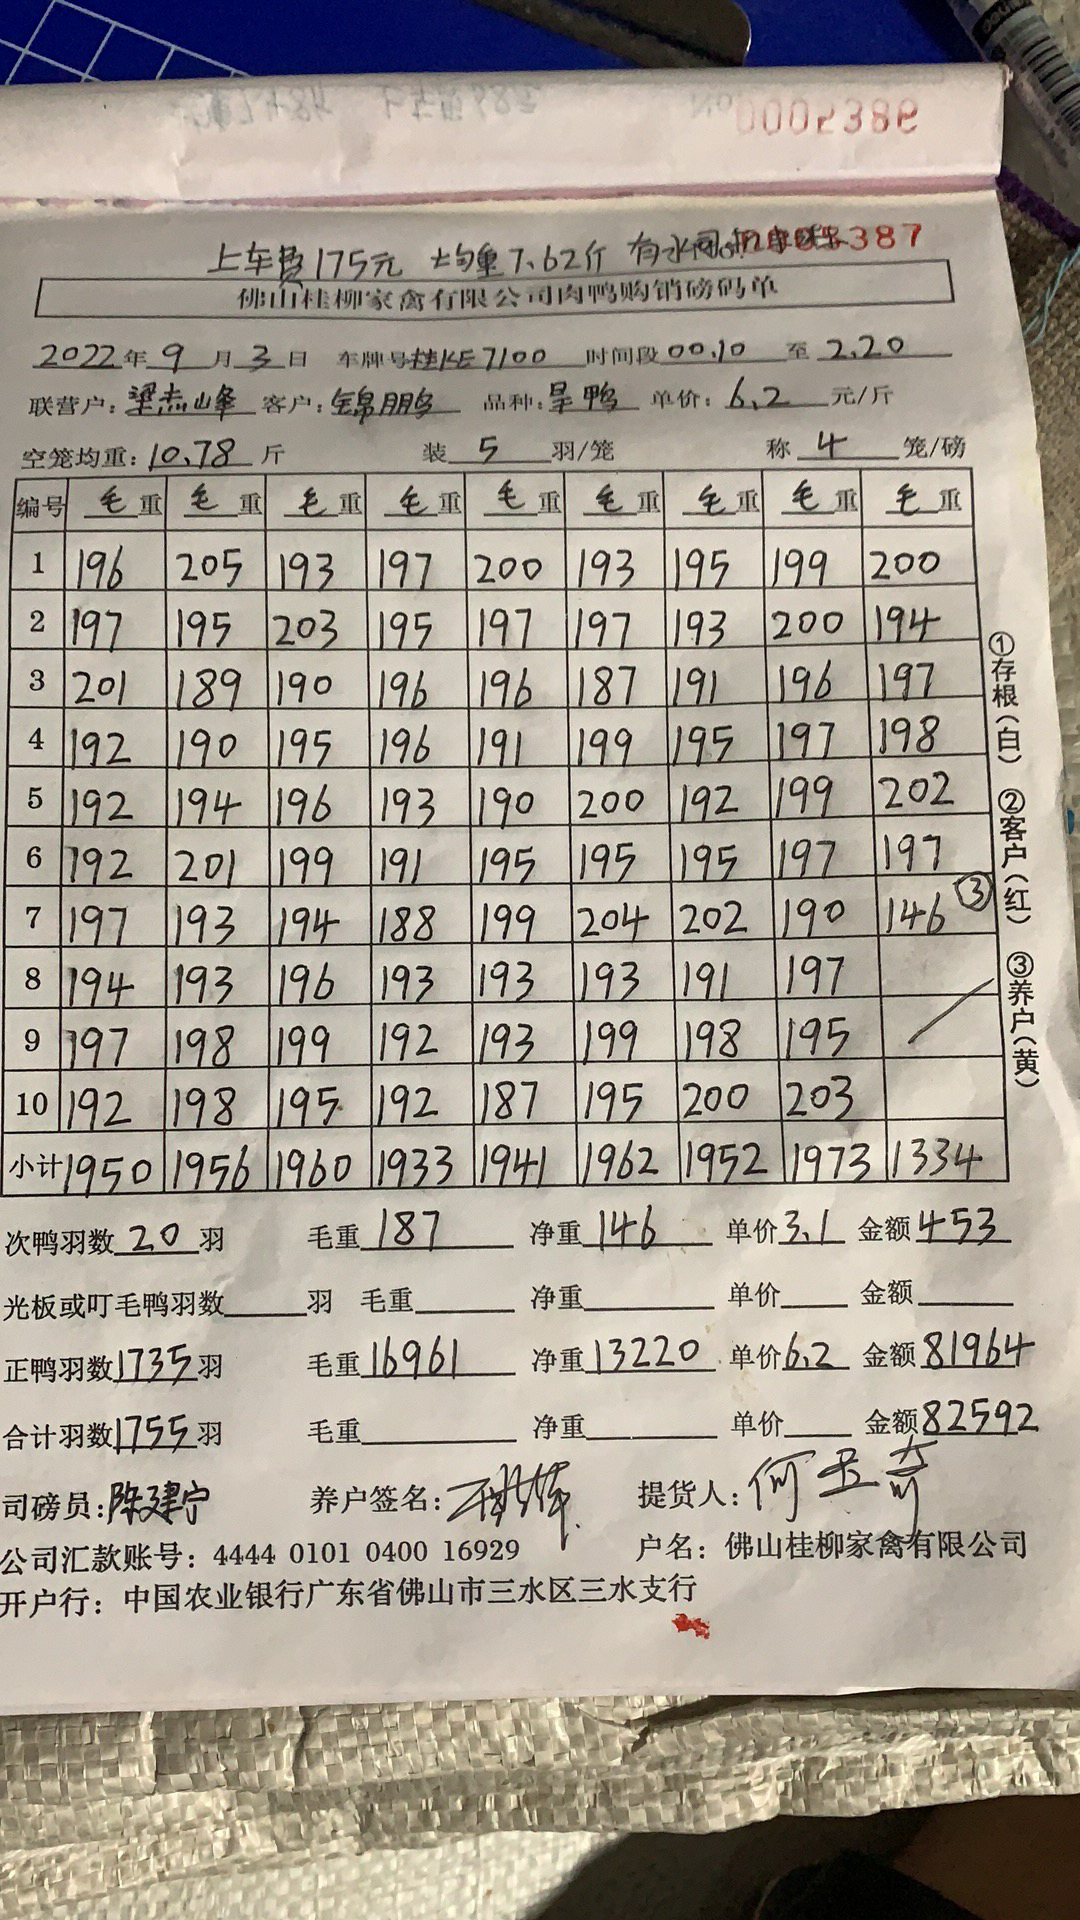 0002386
上车费175元 均重7.62斤
387
佛山桂柳家禽有限公司肉鸭购销磅码单
2022年9月3日 车牌号桂KE7100 时间段00.10至2.20
联营户:梁志峰 客户:锦鹏 品种: 单价:6.2元/斤
空笼均重:10.78斤 装5羽/笼 称4笼/磅
编号 毛重 毛重 毛重 毛重 毛重 毛重 毛重 毛重 毛重
1 196 205 193 197 200 193 195 199 200
2 197 195 203 195 197 197 193 200 194
3 201 189 190 196 196 187 191 196 197
4 192 190 195 196 191 199 195 197 198
5 192 194 196 193 190 200 192 199 202
6 192 201 199 191 195 195 195 197 197
7 197 193 194 188 199 204 202 190 146 ③
8 194 193 196 193 193 193 191 197
9 197 198 199 192 193 199 198 195
10 192 198 195 192 187 195 200 203
小计 1950 1956 1960 1933 1941 1962 1952 1973 1334
①存根(白) ②客户(红) ③养户(黄)
次鸭羽数20羽 毛重187 净重146 单价3.1 金额453
光板或叮毛鸭羽数 羽 毛重 净重 单价 金额
正鸭羽数1735羽 毛重16961 净重13220 单价6.2 金额81964
合计羽数1755羽 毛重 净重 单价 金额82592
司磅员:陈建宁 养户签名: 提货人:何
公司汇款账号:4444 0101 0400 16929 户名:佛山桂柳家禽有限公司
开户行:中国农业银行广东省佛山市三水区三水支行